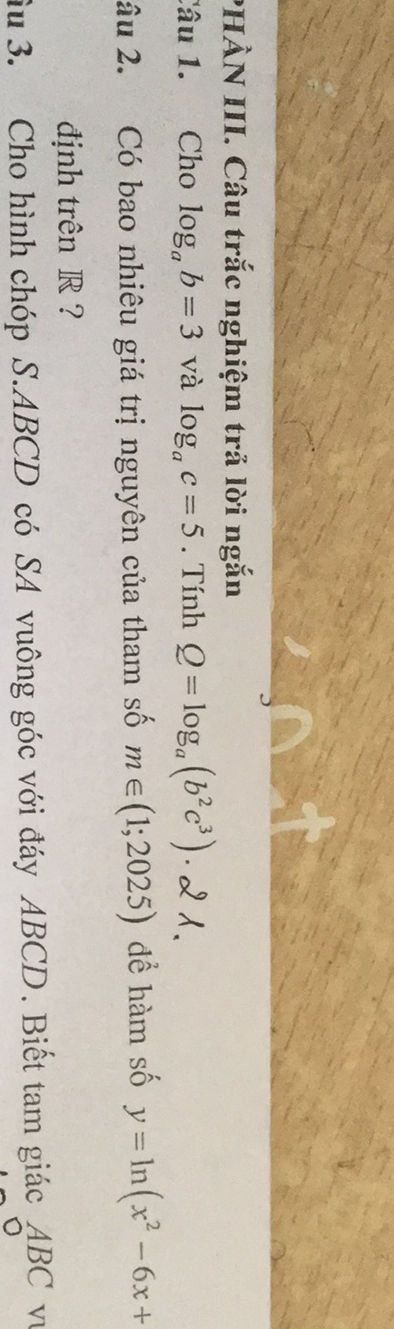 PHẦN III. Câu trắc nghiệm trả lời ngắn
Câu 1. Cho log_a b = 3 và log_a c = 5. Tính Q = log_a(b²c³). 21.
âu 2. Có bao nhiêu giá trị nguyên của tham số m ∈ (1; 2025) để hàm số y = ln(x² − 6x +
định trên ℝ ?
âu 3. Cho hình chóp S.ABCD có SA vuông góc với đáy ABCD. Biết tam giác ABC vu